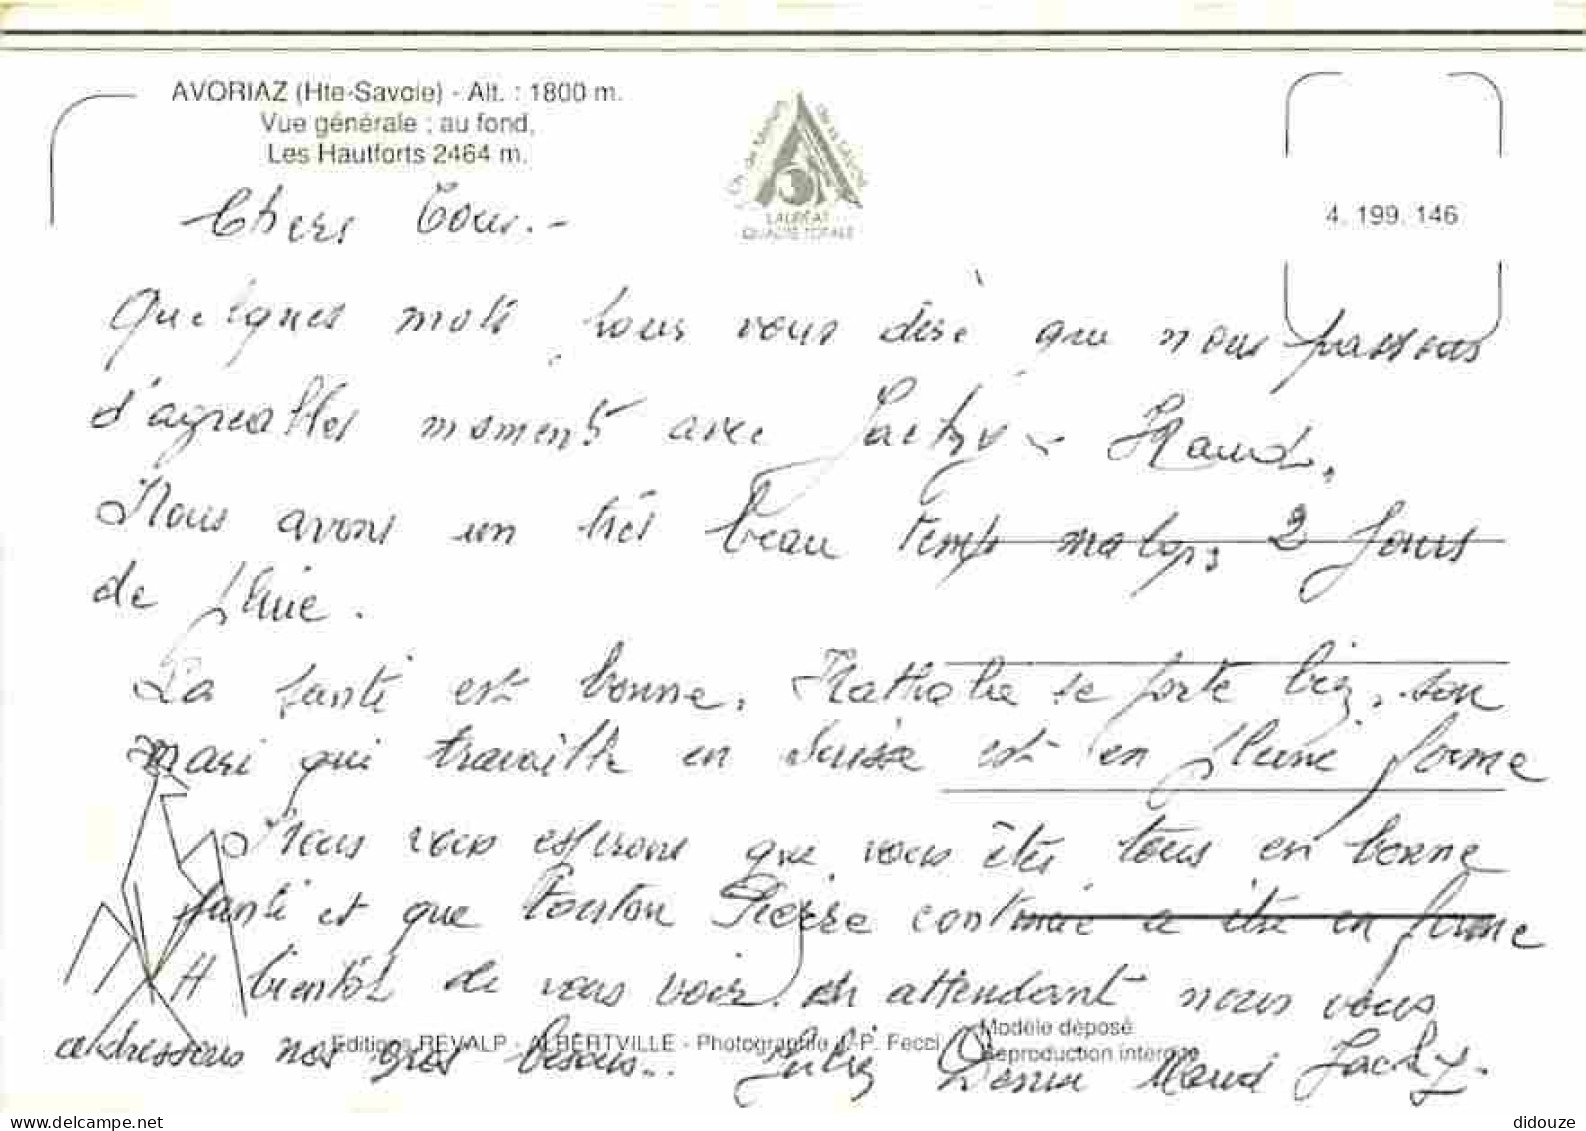 AVORIAZ (Hte-Savoie) - Alt. : 1800 m.
Vue générale : au fond,
Les Hautforts 2464 m.
LAURÉAT
QUALITÉ TOTALE
4. 199. 146
Chers Tous.-
Quelques mots pour vous dire que nous passons
d'agréables moments avec Jacky - Maud.
Nous avons un très beau temps malgré 2 Jours
de pluie.
La santé est bonne, Nathalie se porte bien, son
mari qui travaille en Suisse est en pleine forme
Nous vous espérons que vous êtes tous en bonne
santé et que Tonton Pierre continue a être en forme
A bientôt de vous voir. en attendant nous vous
adressons nos gros bisous...
Denise Maud Jacky.
Editions REVALP - ALBERTVILLE - Photographie J.-P. Fecci
Modèle déposé
Reproduction interdite
didouze